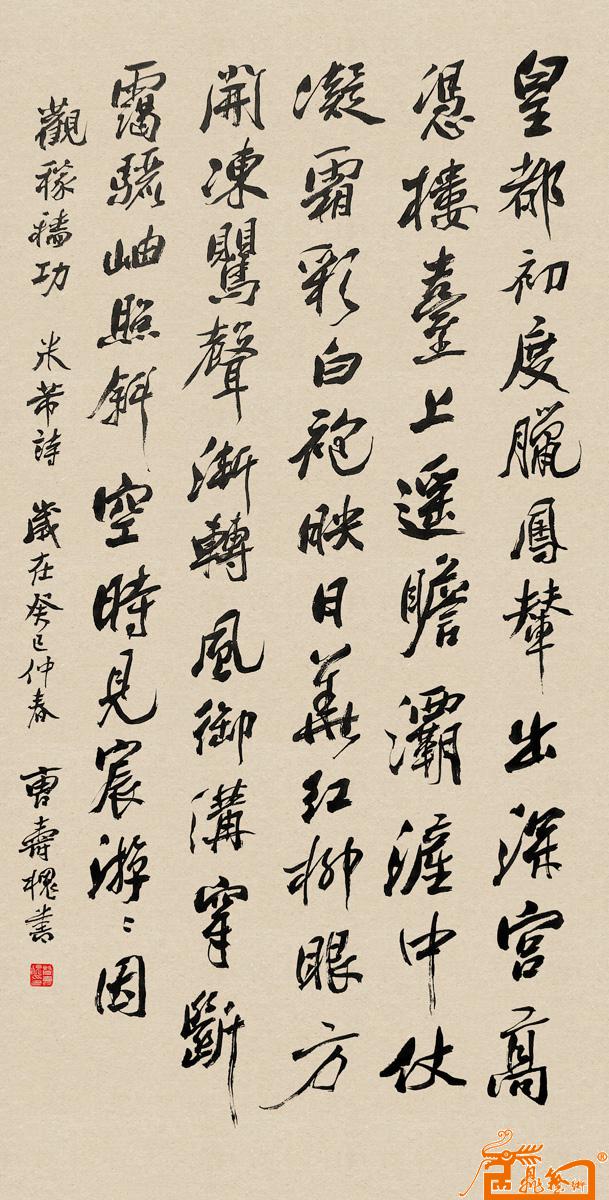 皇都初度臘鳳輦出深宮高
憑樓臺上遥瞻灞滻中仗
凝霜彩白袍映日華紅柳眼方
開凍鶯聲漸轉風御溝穿斷
靄驪岫照斜空時見宸游游因
觀稼穡功 米芾詩 歲在癸巳仲春 曹壽槐書